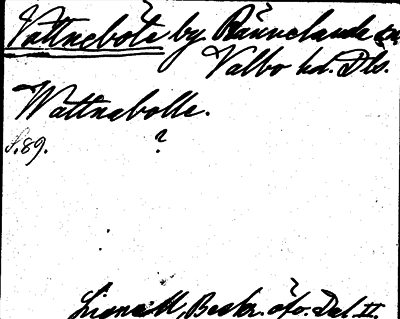 Vattnebole by Rännelanda sn.
Valbo hd. Dls.
Wattnebolle.
s. 89. ?
Lignell, Beskr. öfv. Dal II.